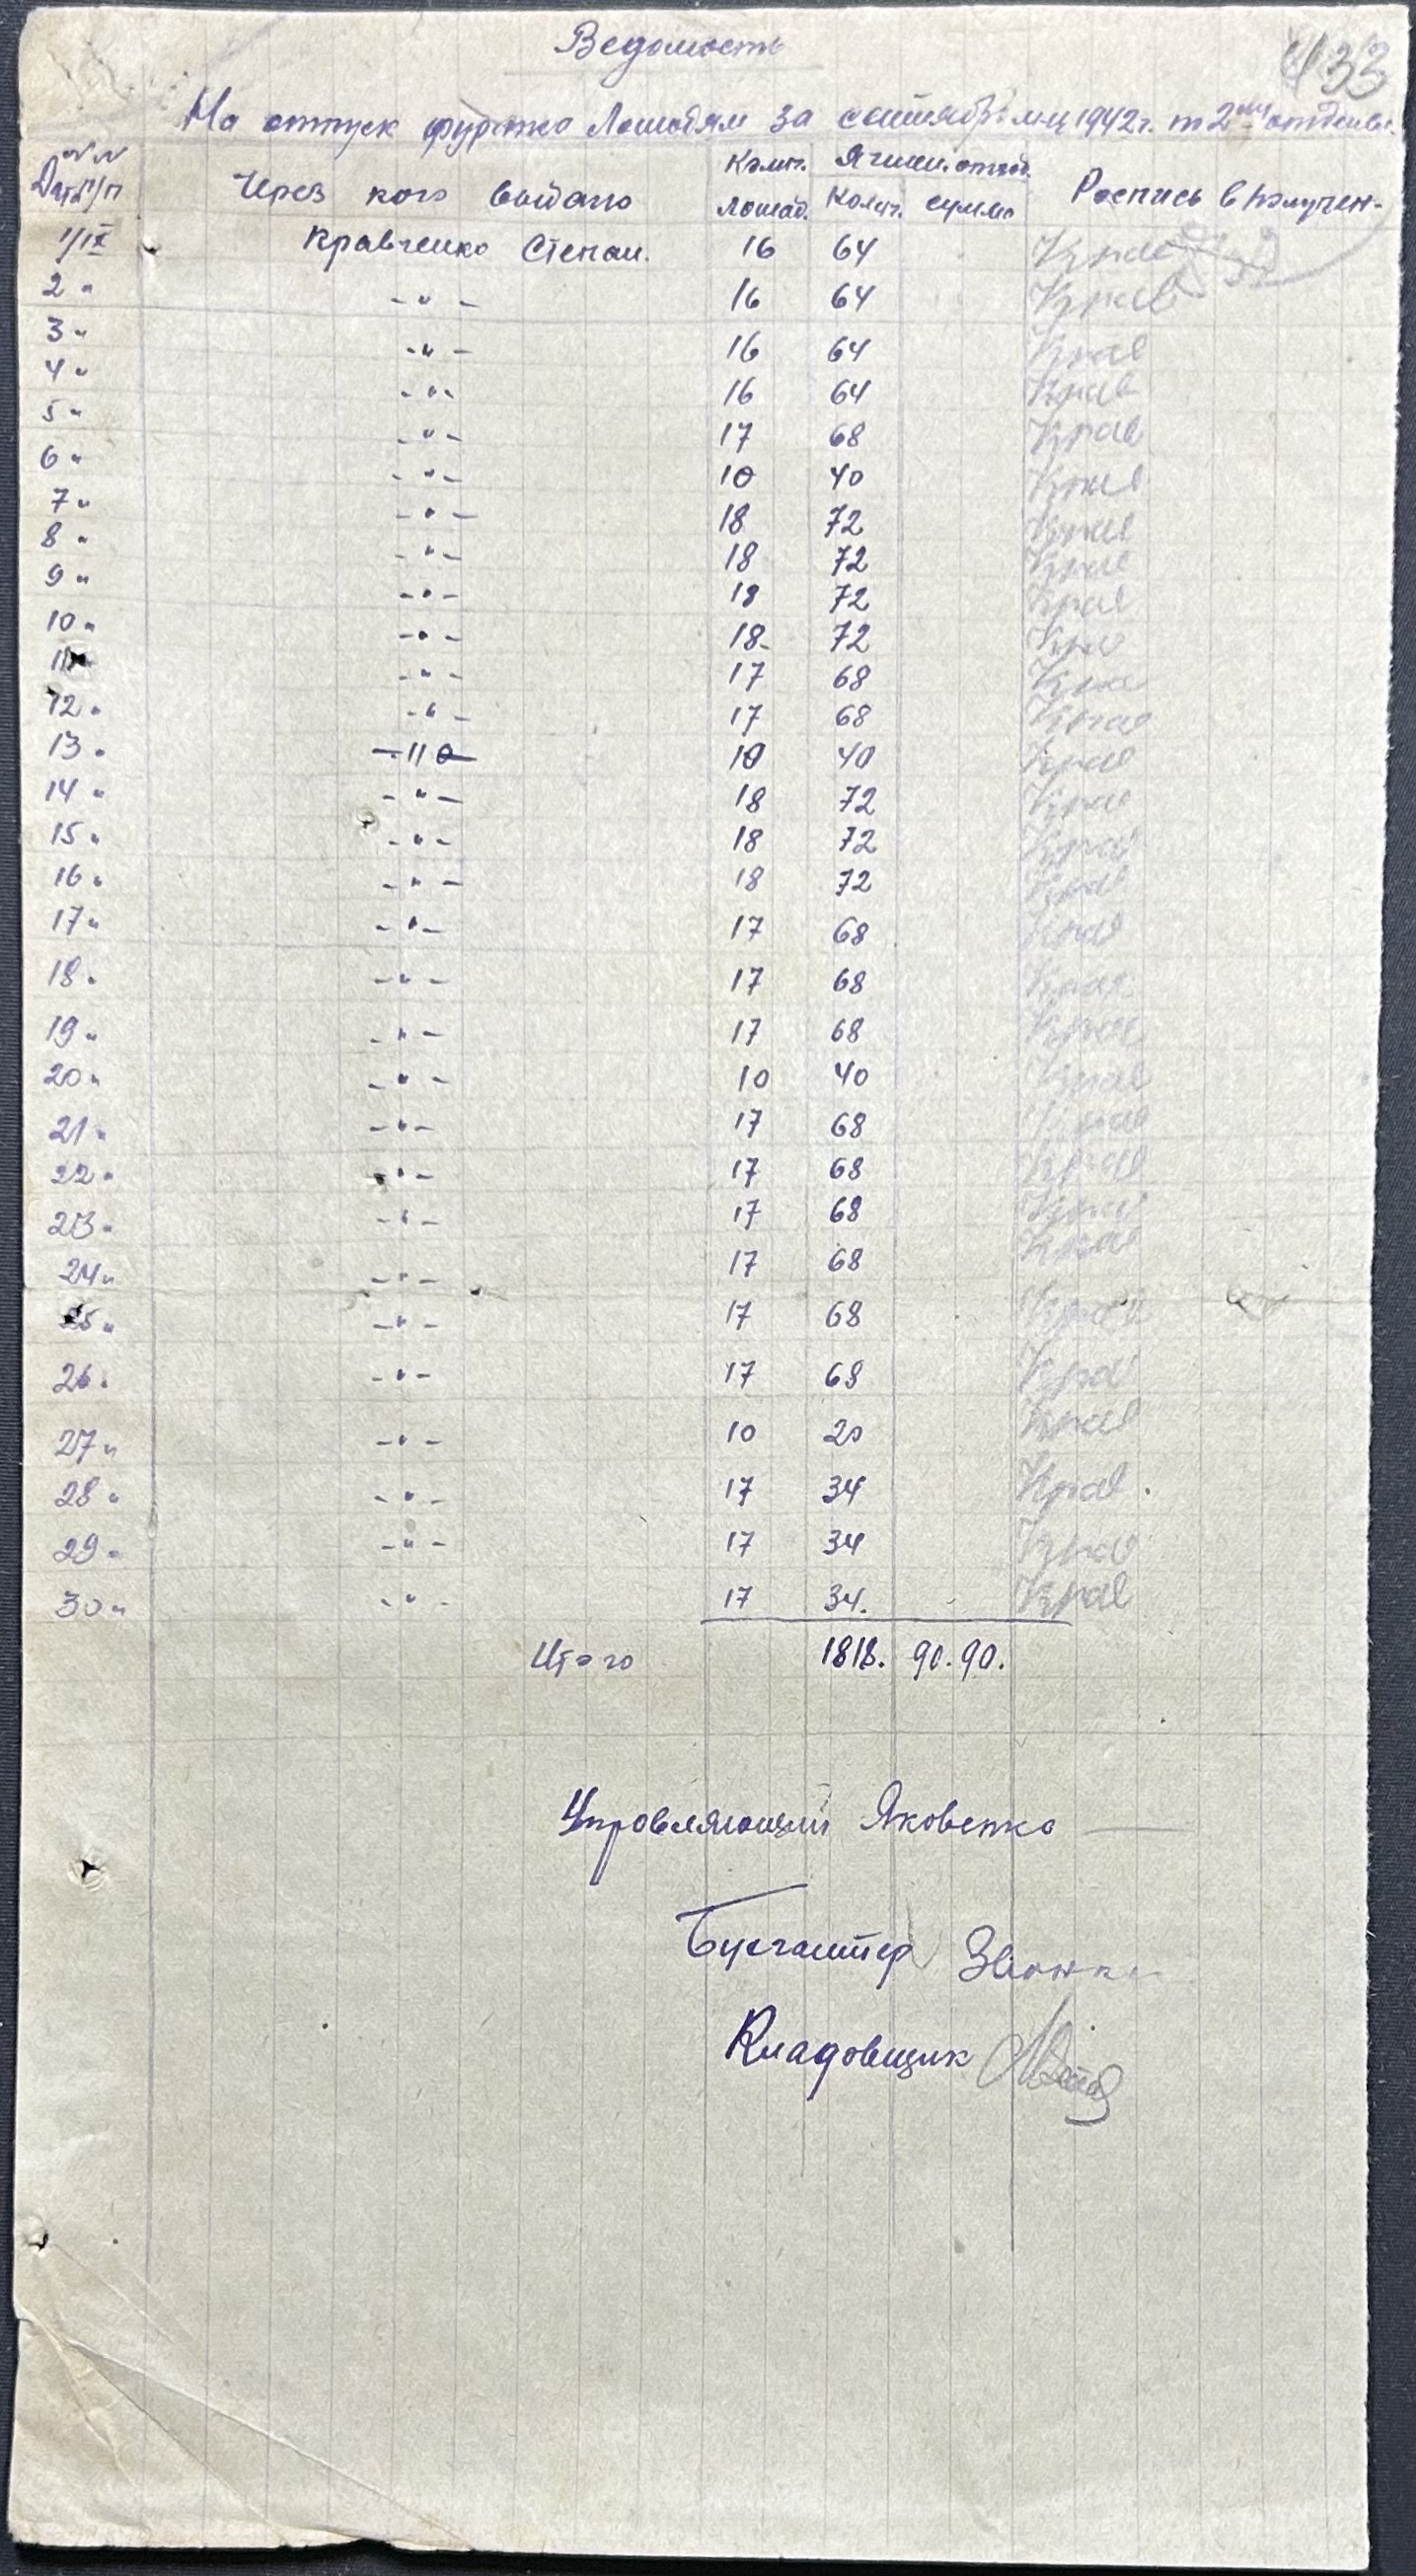 433
Ведомость
На отпуск фуража Лошадям за сентябрь м-ц 1942г. 2ому
№ №
Дата п/п Через кого выдано Колич. Лошад. Ячмен. отход. Колич. сумма Роспись в получен-
1/IX Кравченко Степан. 16 64 Крав
2 " - " - 16 64 Крав
3 " - " - 16 64 Крав
4 " - " - 16 64 Крав
5 " - " - 17 68 Крав
6 " - " - 10 40 Крав
7 " - " - 18 72 Крав
8 " - " - 18 72 Крав
9 " - " - 18 72 Крав
10 " - " - 18 72 Кра
11 " - " - 17 68 Кра
12 " - " - 17 68 Крав
13 " - " - 10 40 Крав
14 " - " - 18 72 Крав
15 " - " - 18 72 Крав
16 " - " - 18 72 Крав
17 " - " - 17 68 Крав
18 " - " - 17 68 Крав
19 " - " - 17 68 Крав
20 " - " - 10 40 Крав
21 " - " - 17 68 Крав
22 " - " - 17 68 Крав
23 " - " - 17 68 Крав
24 " - " - 17 68 Крав
25 " - " - 17 68 Крав
26 " - " - 17 68 Крав
27 " - " - 10 20 Крав
28 " - " - 17 34 Крав
29 " - " - 17 34 Крав
30 " - " - 17 34. Крав
Итого 1818. 90.90.
Управляющий Яковенко
Бухгалтер
Кладовщик